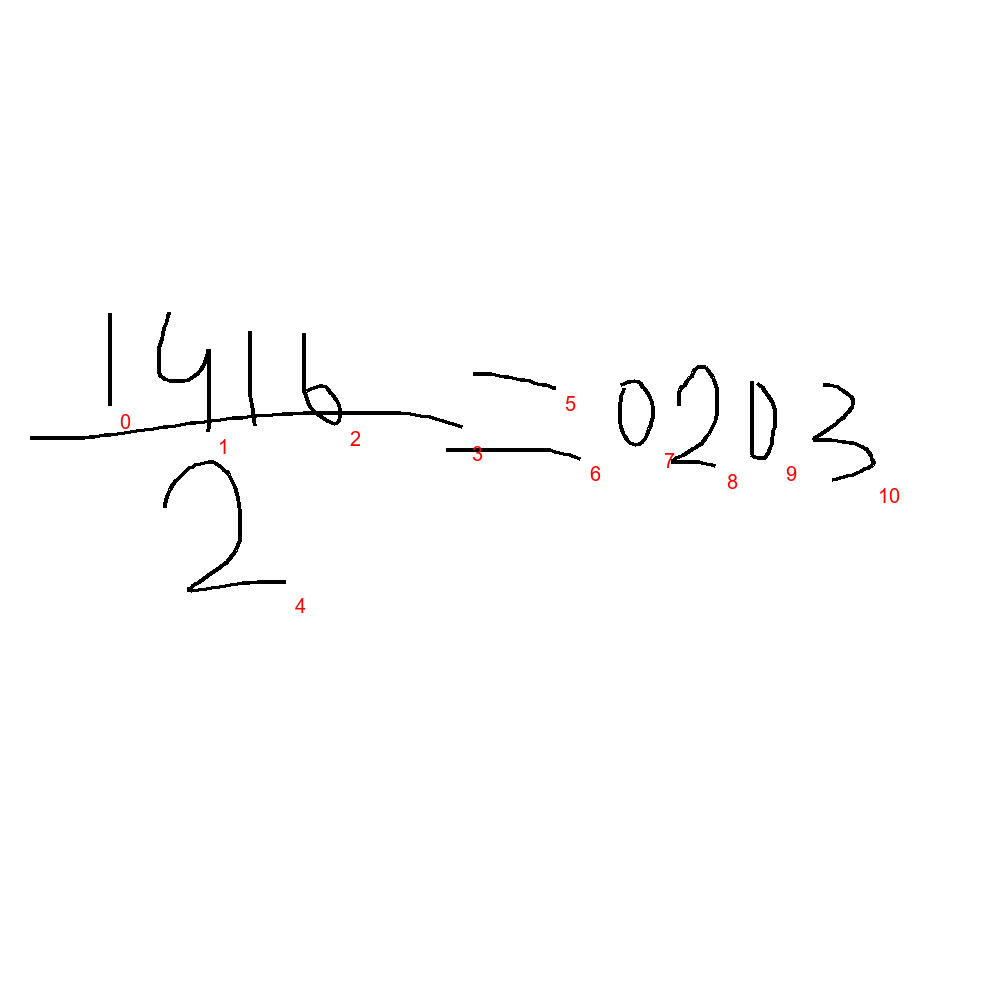 1416
2
= 0203
0
1
2
3
4
5
6
7
8
9
10